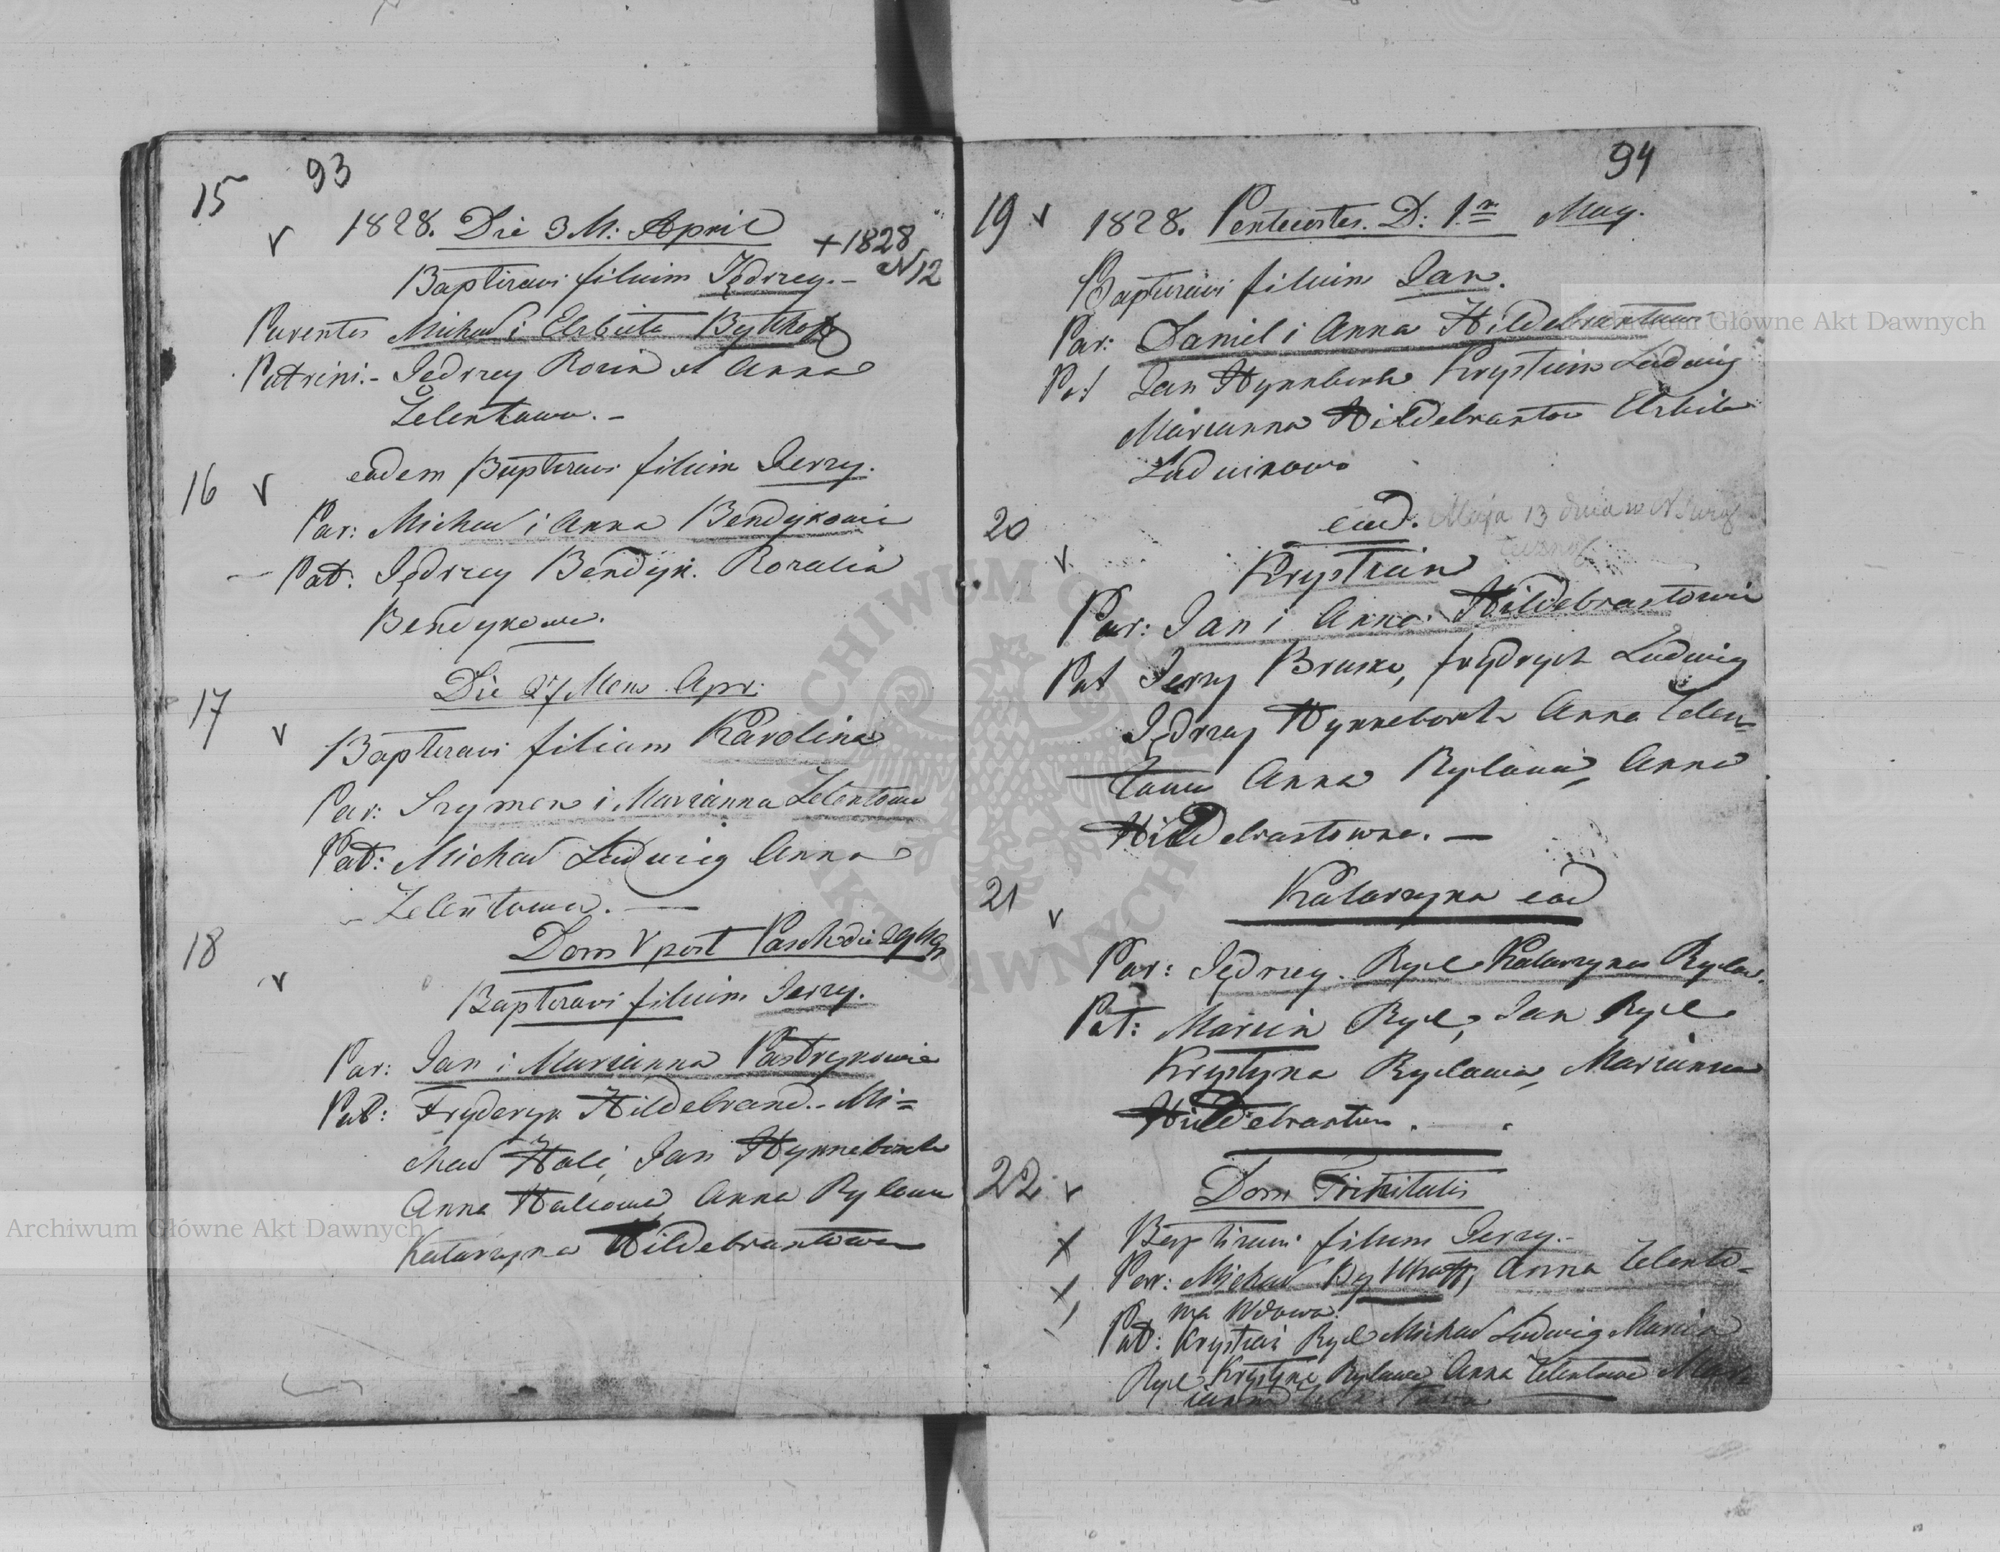 93
15
1828. Die 3 M: April
+ 1828
N 12
Baptizavi filium Jędrzey. -
Parentes Michał i Elzbieta Bytkhoff
Patrini. - Jędrzey Rozin et Anna
Zelentowa. -
16
eadem Baptizavi filium Jerzy.
Par: Michał i Anna Bendykowie
Pat: Jędrzey Bendyk. Rozalia
Bendykowa.
17
Die 27 Mens. Apr:
Baptizavi filiam Karolina
Par: Szymon i Marianna Zelentowie
Pat: Michał Ludwig Anna
Zelentowa. —
18
Dom V post Pasch die
Baptizavi filium Jerzy.
Par: Jan i Marianna Pastrykowie
Pat: Fryderyk Hildebrand. - Mi=
chał Hale, Jan Hynnebork
Anna Halcowa, Anna Rylowa
Katarzyna Hildebrantowa
94
19
1828. Pentecostes. D: 1. May.
Baptizavi filium Jan.
Par: Daniel i Anna Hildebrantowie
Pat Jan Hynnbork Krystian Ludwig
Marianna Hildebrantow Elzbie
Ludwikowa
20
ead. Maja 13 dnia w N Swią
teczno
Krystian
Par: Jan i Anna Hildebrantowie
Pat Jerzy Bruske, frydrych Ludwig
Jędrzey Hynnebork Anna Zelen=
towa Anna Rylowa, Anna
Hildebrantowna. —
21
Katarzyna ead
Par: Jędrzey. Ryl Katarzyna Rylow.
Pat: Marcin Ryl, Jan Ryl
Krystyna Rylowa, Marianna
Hildebrantow .
22
Dom Trinitatis
Baptizavi filium Jerzy. -
Par: Michał Bytkhoff, Anna Zelento=
wa Wdowa.
Pat: Krystian Ryl Michał Ludwig Marcin
Ryl Krystyna Rylowa Anna Zelentowa Mar
ianna
Archiwum Główne Akt Dawnych
Archiwum Główne Akt Dawnych
ARCHIWUM GŁÓWNE AKT DAWNYCH